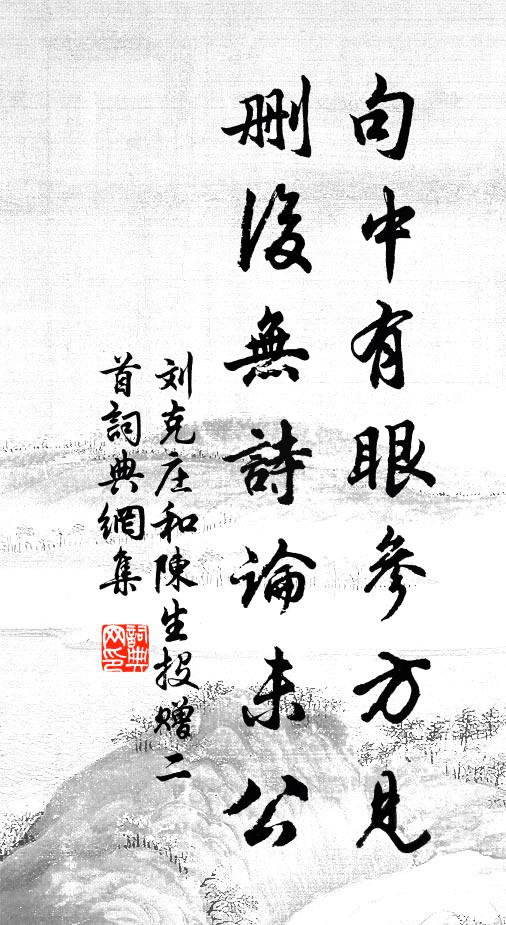 句中有眼參方見
刪後無詩論未公
刘克庄和陳生投贈二
首詞典網集
詞典
网印